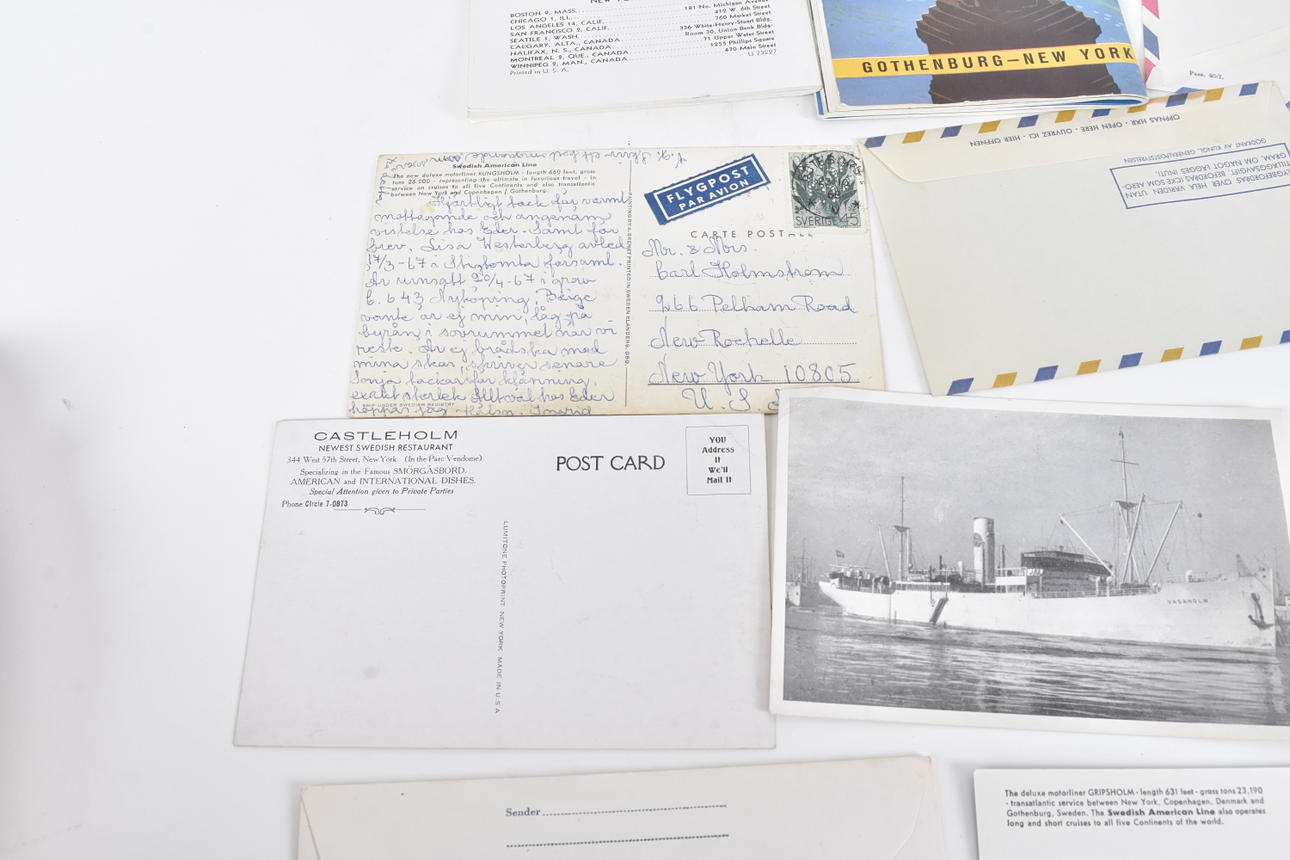 BOSTON 9, MASS. 181 No. Michigan Avenue
CHICAGO 1, ILL. 412 W. 6th Street
LOS ANGELES 14, CALIF. 760 Market Street
SAN FRANCISCO 2, CALIF. 336 White-Henry-Stuart Bldg.
SEATTLE 1, WASH. Room 30, Union Bank Bldg.
CALGARY, ALTA., CANADA 71 Upper Water Street
HALIFAX, N. S., CANADA 1255 Phillips Square
MONTREAL 2, QUE., CANADA 470 Main Street
WINNIPEG 2, MAN., CANADA
Printed in U. S. A. U 73227
GOTHENBURG—NEW YORK
ÖPPNAS HÄR · OPEN HERE · OUVREZ ICI · HIER ÖFFNEN
GODKÄNT AV KUNGL. GENERALPOSTSTYRELSEN
FLYGBEFORDRAS ÖVER HELA VÄRLDEN UTAN
TILLÄGGSAVGIFT. BEFORDRAS ICKE SOM AERO-
GRAM OM NÅGOT LAGTS INUTI.
Swedish American Line
The new deluxe motorliner KUNGSHOLM - length 660 feet, gross
tons 26.000 - representing the ultimate in luxurious travel - in
service on cruises to all five Continents and also transatlantic
between New York and Copenhagen / Gothenburg.
Hjärtligt tack för varmt
mottagande och angenäm
vistelse hos Eder. Samt för
brev. Lisa Westerberg avled
17/3-67 i Stigtomta församl.
Är urnsatt 20/4-67 i grav
6. 643 Nyköping. Beige
vante är ej min, låg på
byrån i sovrummet när vi
reste. Är ej brådska med
mina skor, skriver senare
Sonja tackar för klänning,
exakt storlek Allt väl hos Eder
hoppas jag Hälsn. Ingrid
SHIP UNDER SWEDISH REGISTRY
FLYGPOST
PAR AVION
SVERIGE 45
CARTE POSTALE
Mr. & Mrs.
Carl Holmstrom
266 Pelham Road
New Rochelle
New York 10805
U. S.
CASTLEHOLM
NEWEST SWEDISH RESTAURANT
344 West 57th Street, New York (In the Parc Vendome)
Specializing in the Famous SMÖRGÅSBORD.
AMERICAN and INTERNATIONAL DISHES.
Special Attention given to Private Parties
Phone Circle 7-0873
POST CARD
YOU
Address
It
We'll
Mail It
LUMITONE PHOTOPRINT NEW YORK MADE IN U.S.A
VASAHOLM
Sender
The deluxe motorliner GRIPSHOLM - length 631 feet - gross tons 23,190
- transatlantic service between New York, Copenhagen, Denmark and
Gothenburg, Sweden. The Swedish American Line also operates
long and short cruises to all five Continents of the world.